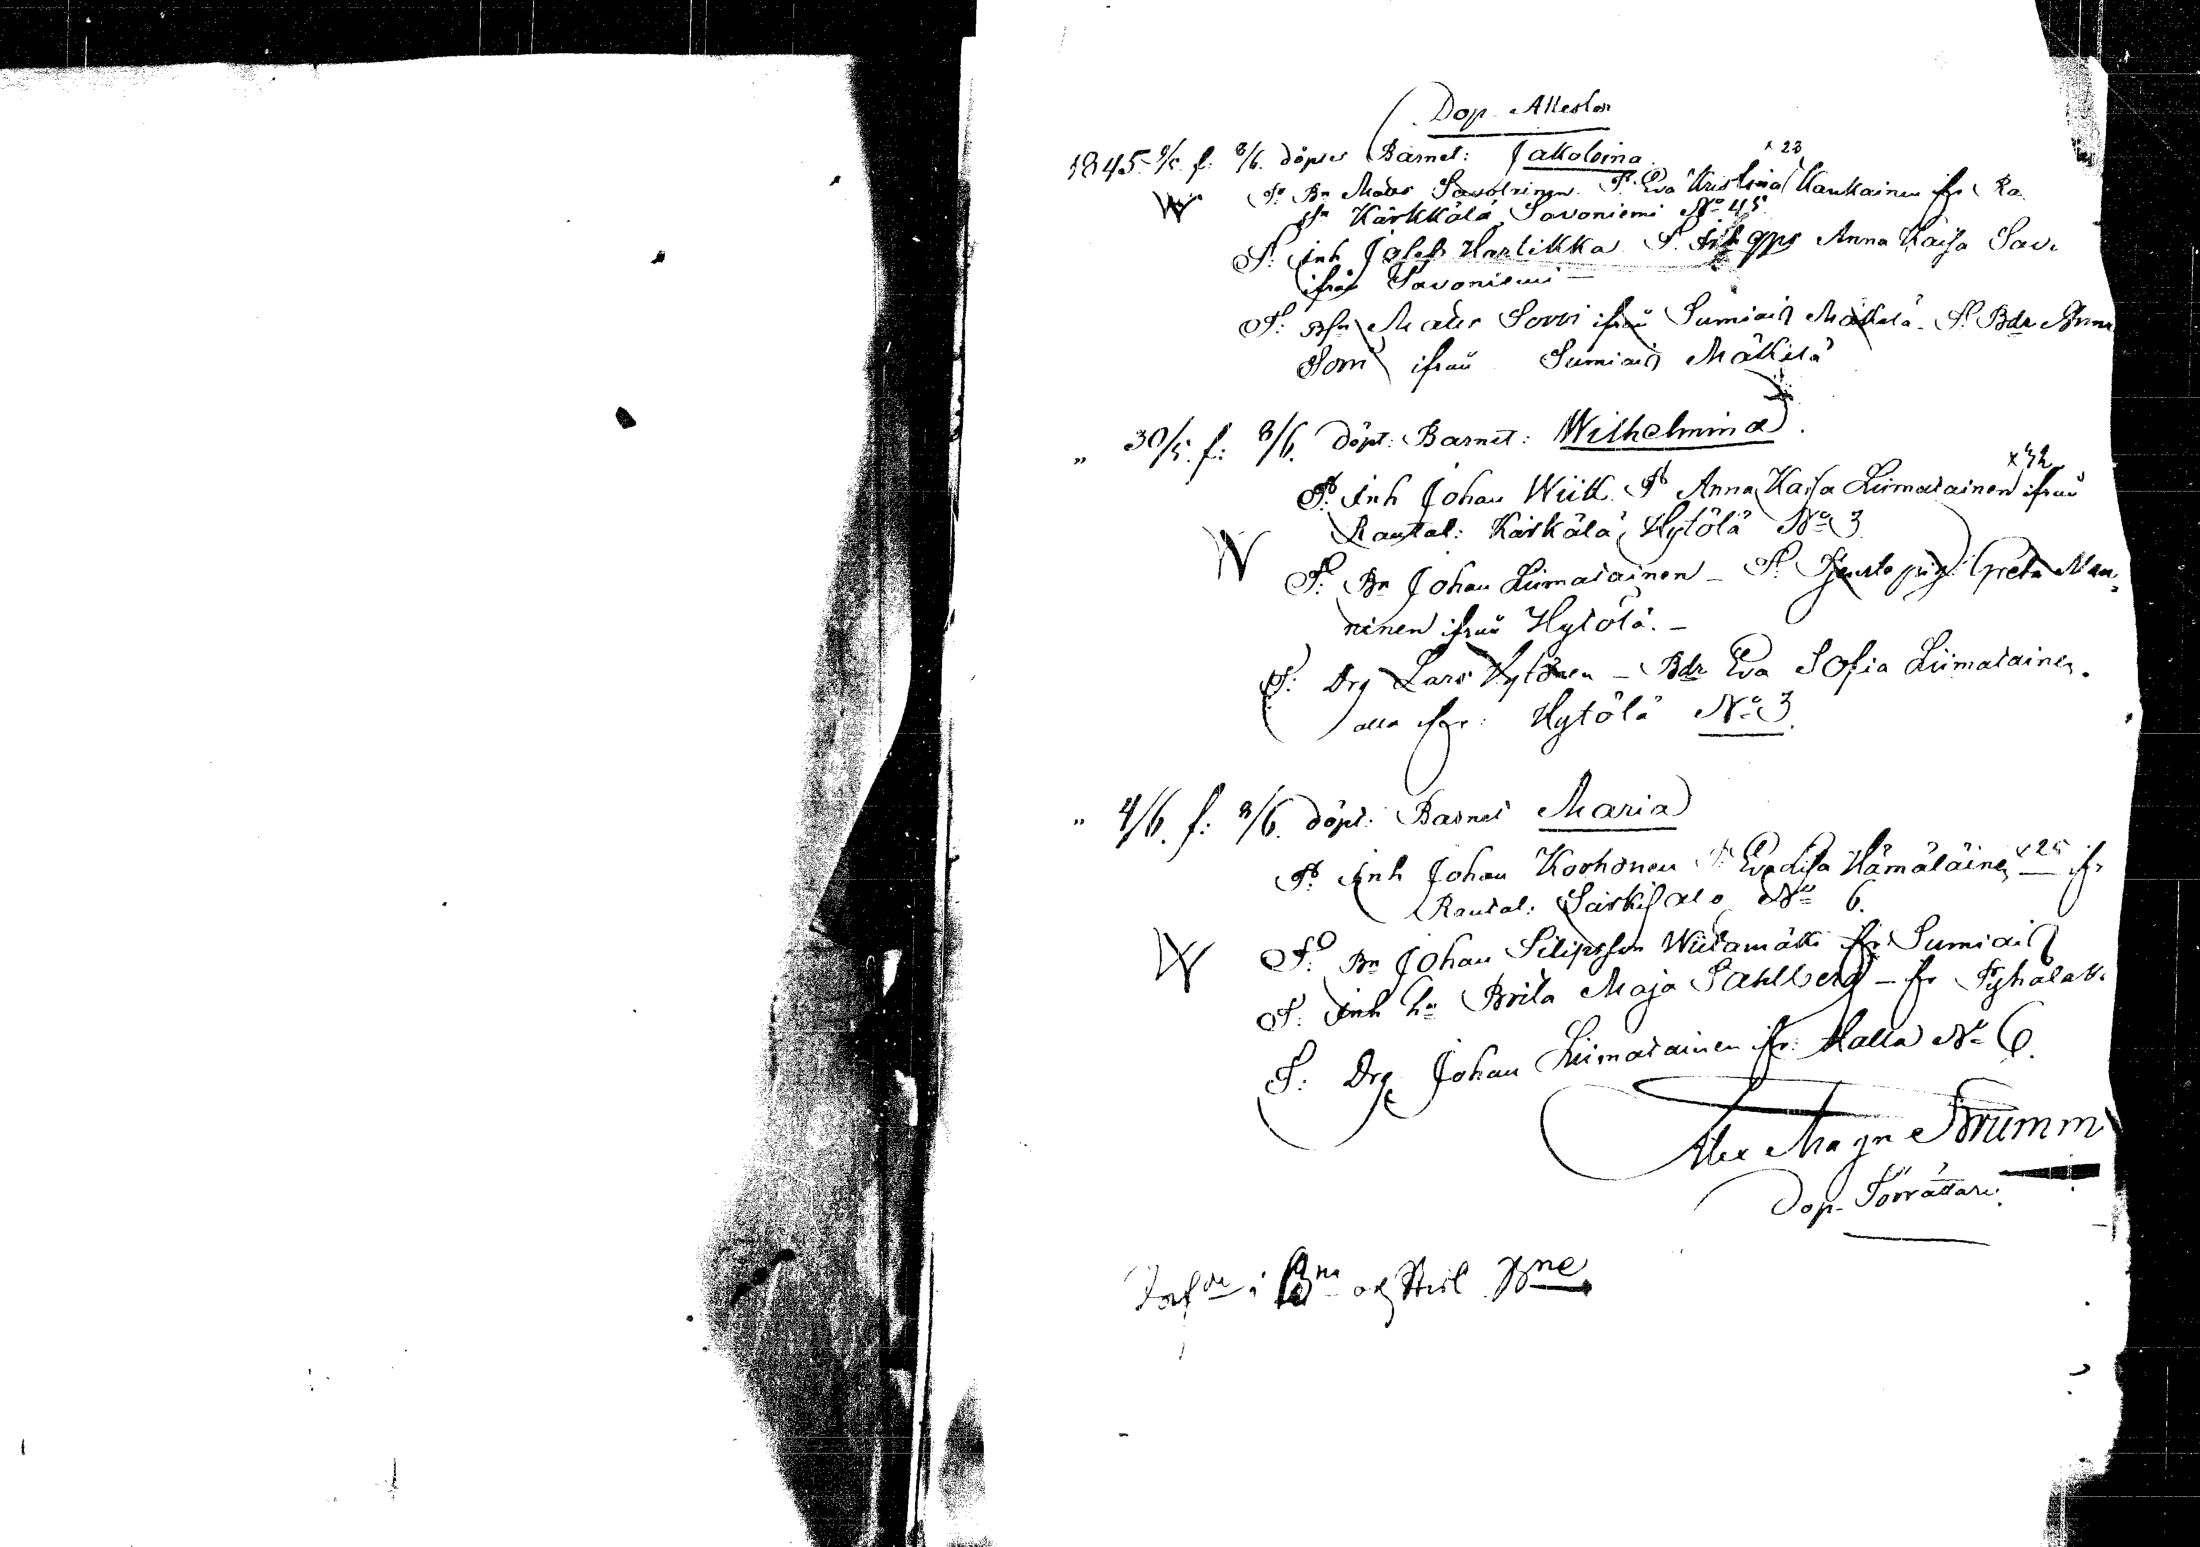 Dop-Attester
1845. f: 8/6. döptes Barnet: Jakobina
x 23
F. Bn Mats Savolainen F. Eva Kristina Kaukainen ifr Ra
Kärkkälä Savoniemi No 45
F: inh Josef Hartikka F. Anna Kaisa Sav
ifrån Savoniemi —
F: Mats Sorri ifrån Sumiais Mäkelä - F. Bdr Anna
Sorri ifrån Sumiais Mäkelä
„ 30/5. f: 8/6. döpt: Barnet: Wilhelmina.
x 42
F. inh Johan Wiik F Anna Kaisa Liimatainen ifrån
Rautal: Kärkälä Hytölä No 3
W
F: Bn Johan Liimatainen - F. Greta Man=
ninen ifrån Hytölä. —
F: Drg Lars Hytönen - Bdr Eva Sofia Liimatainen.
alla ifr: Hytölä No 3.
„ 4/6. f: 8/6. döpt: Barnet Maria
F. inh Johan Korhonen F. Eva Hämäläinen x 25 ifr
Rautal: Särkisalo No 6.
W
F. Bn Johan Filipsson Wiitamäki fr Sumiais
F: inh Brita Maja Sahlberg - fr Pyhälak.
F: Drg Johan Liimatainen ifr: Kalla No 6.
Alex Magn Brumm
Dop-Förrättare.
i och